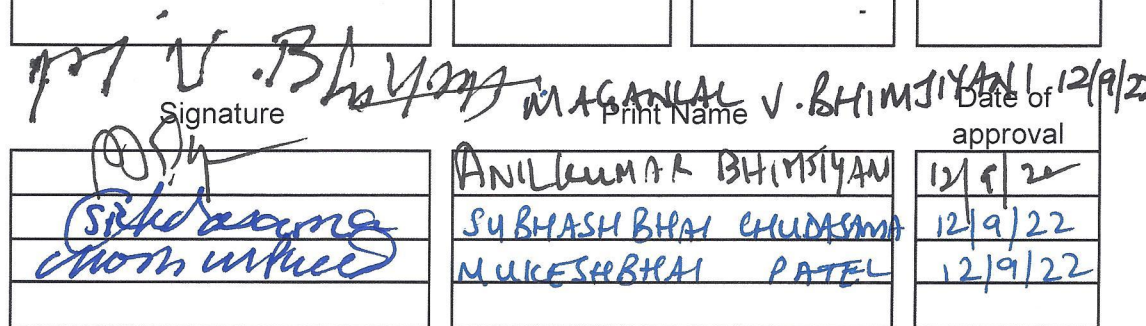 M V. Bhimjiyani MAGANLAL V. BHIMJIYANI 12/9/22
Signature Print Name Date of approval
ANILKUMAR BHIMJIYANI 12/9/22
SUBHASHBHAI CHUDASAMA 12/9/22
MUKESHBHAI PATEL 12/9/22